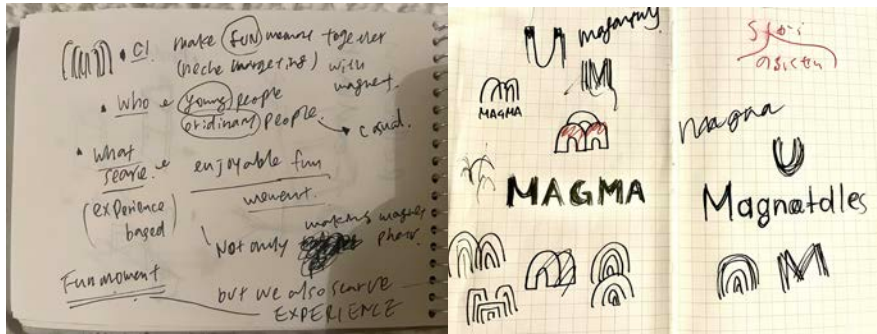 • CI make FUN memory together
(neche margeting) with
magnet.
• Who young people
oridinary people.
casual.
• what
searve. enjoyable fun
(experience
based)
moment.
Not only making magnet
Fun moment
but we also searve
EXPERIENCE
U
M
MAGMA
MAGMA
magma
U
Magnatdles
M